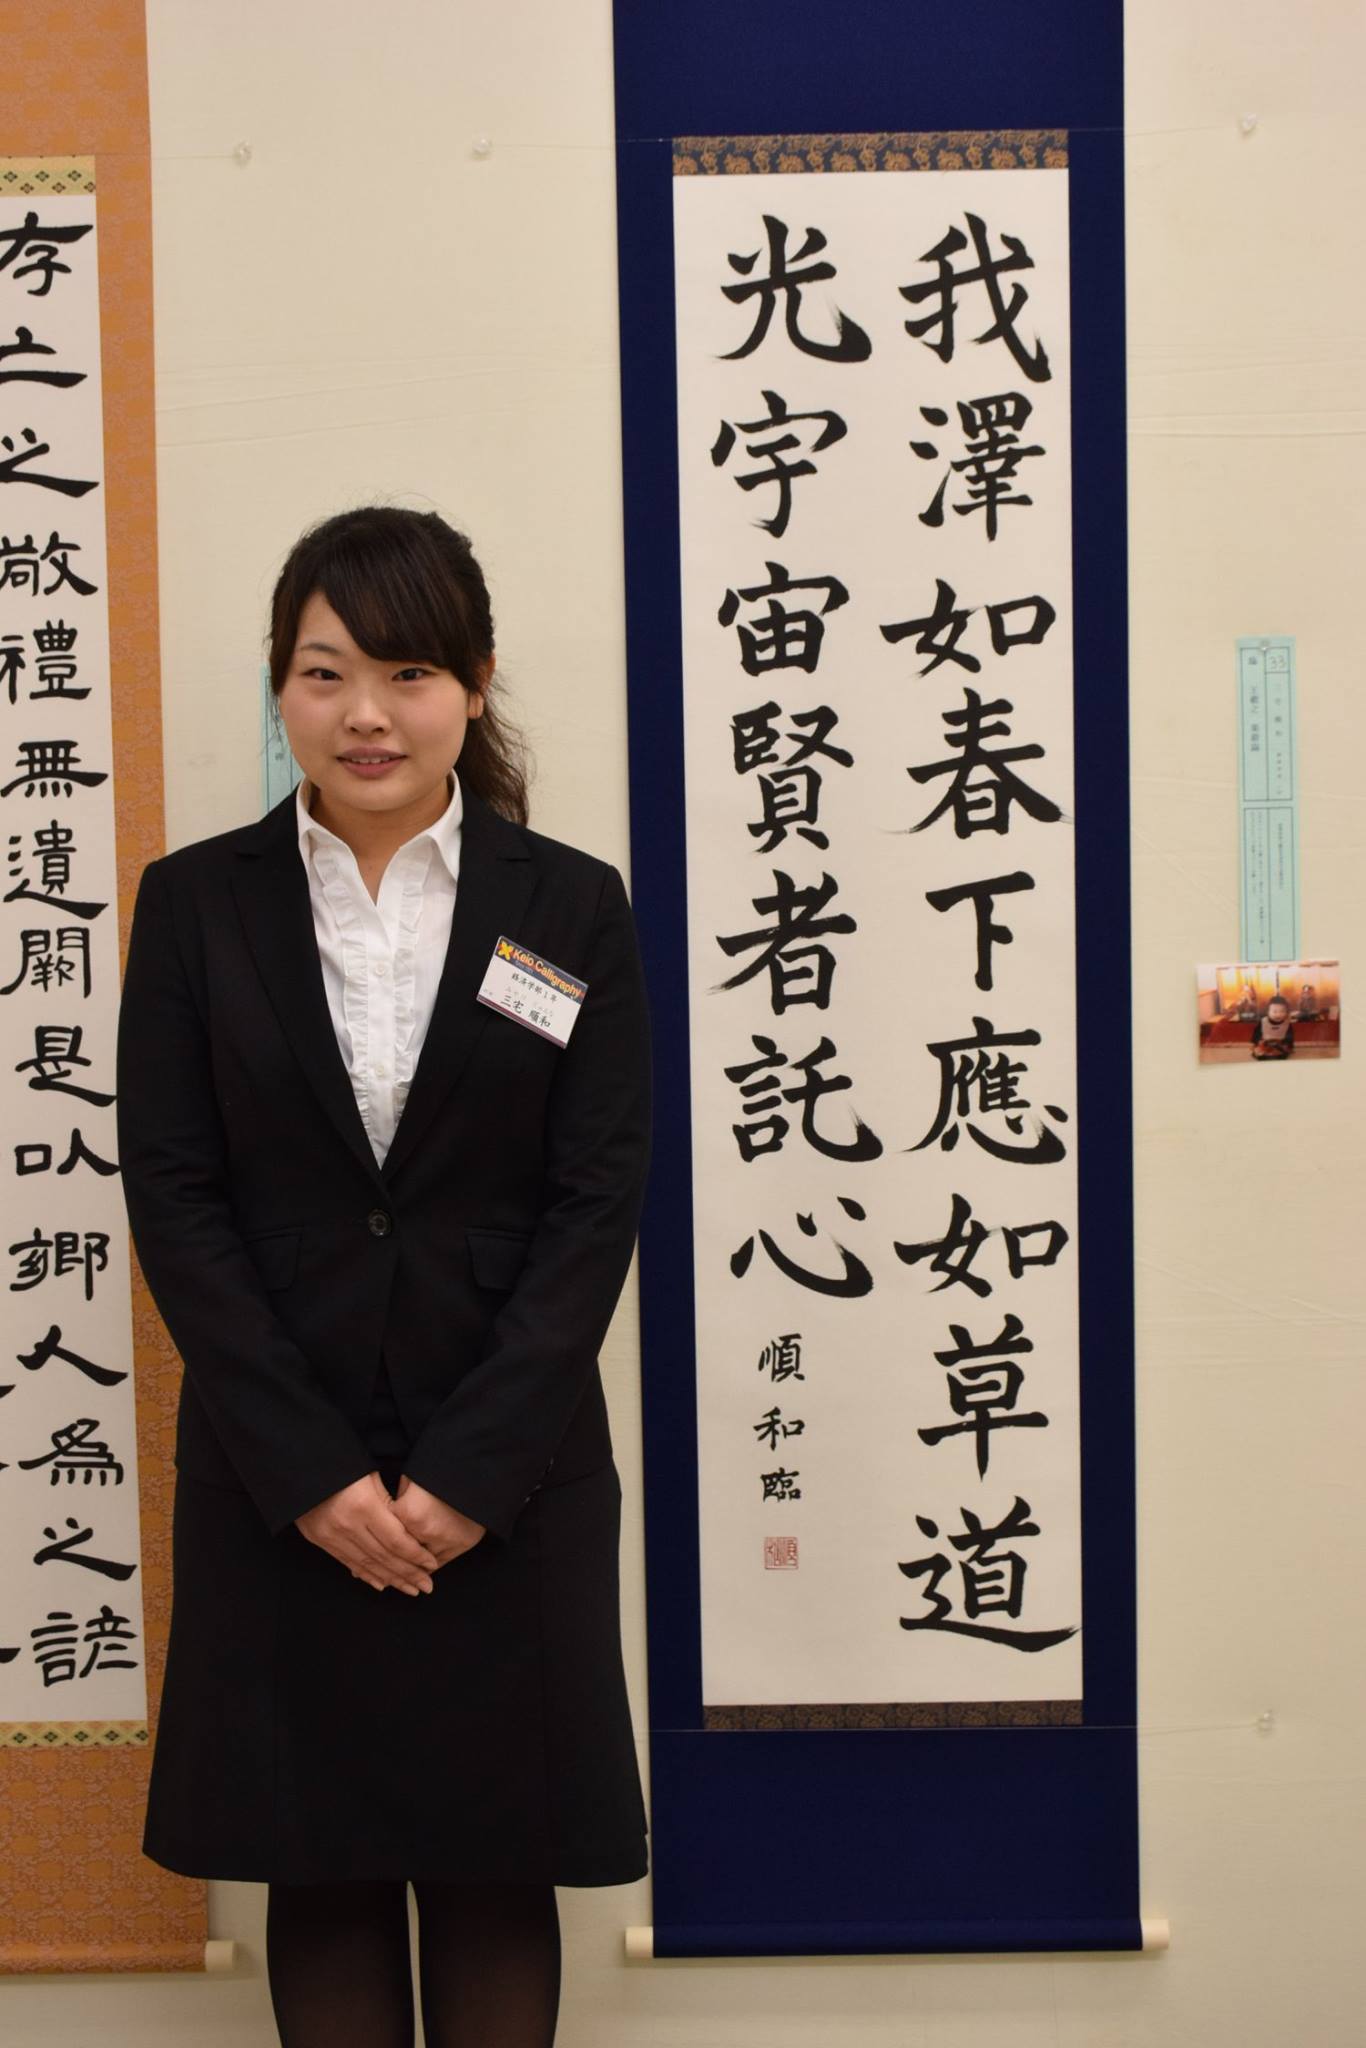 我澤如春下應如草道
光宇宙賢者託心
順和臨
存亡之敬禮無遺闕是以鄉人為之諺
Keio Calligraphy
経済学部1年
三宅 順和
33
臨 王羲之 楽毅論